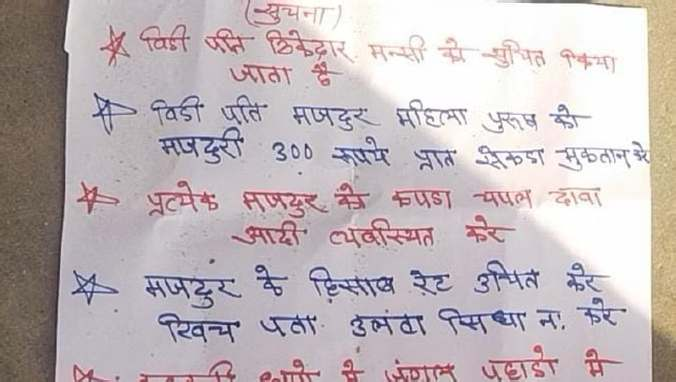 (सुचना)
विडी पति ठिकेदार मन्सी को सुचित किया
जाता है
विडी पति माजदुर महिला पुरुष को
माजदुरी 300 रूपये प्रात सेकडा भुकतान करे
प्रत्येक माजदुर को कपडा चपल दावा
आदी व्यवस्थित करे
माजदुर के हिसाब रेट उचित करे
खिच पता उलटा सिधा न. करे
मे जंगल पहाडो मे